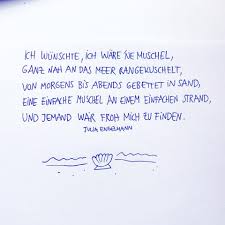 ICH WÜNSCHTE, ICH WÄRE 'NE MUSCHEL,
GANZ NAH AN DAS MEER RANGEKUSCHELT,
VON MORGENS BIS ABENDS GEBETTET IN SAND,
EINE EINFACHE MUSCHEL AN EINEM EINFACHEN STRAND,
UND JEMAND WÄR FROH MICH ZU FINDEN.
JULIA ENGELMANN